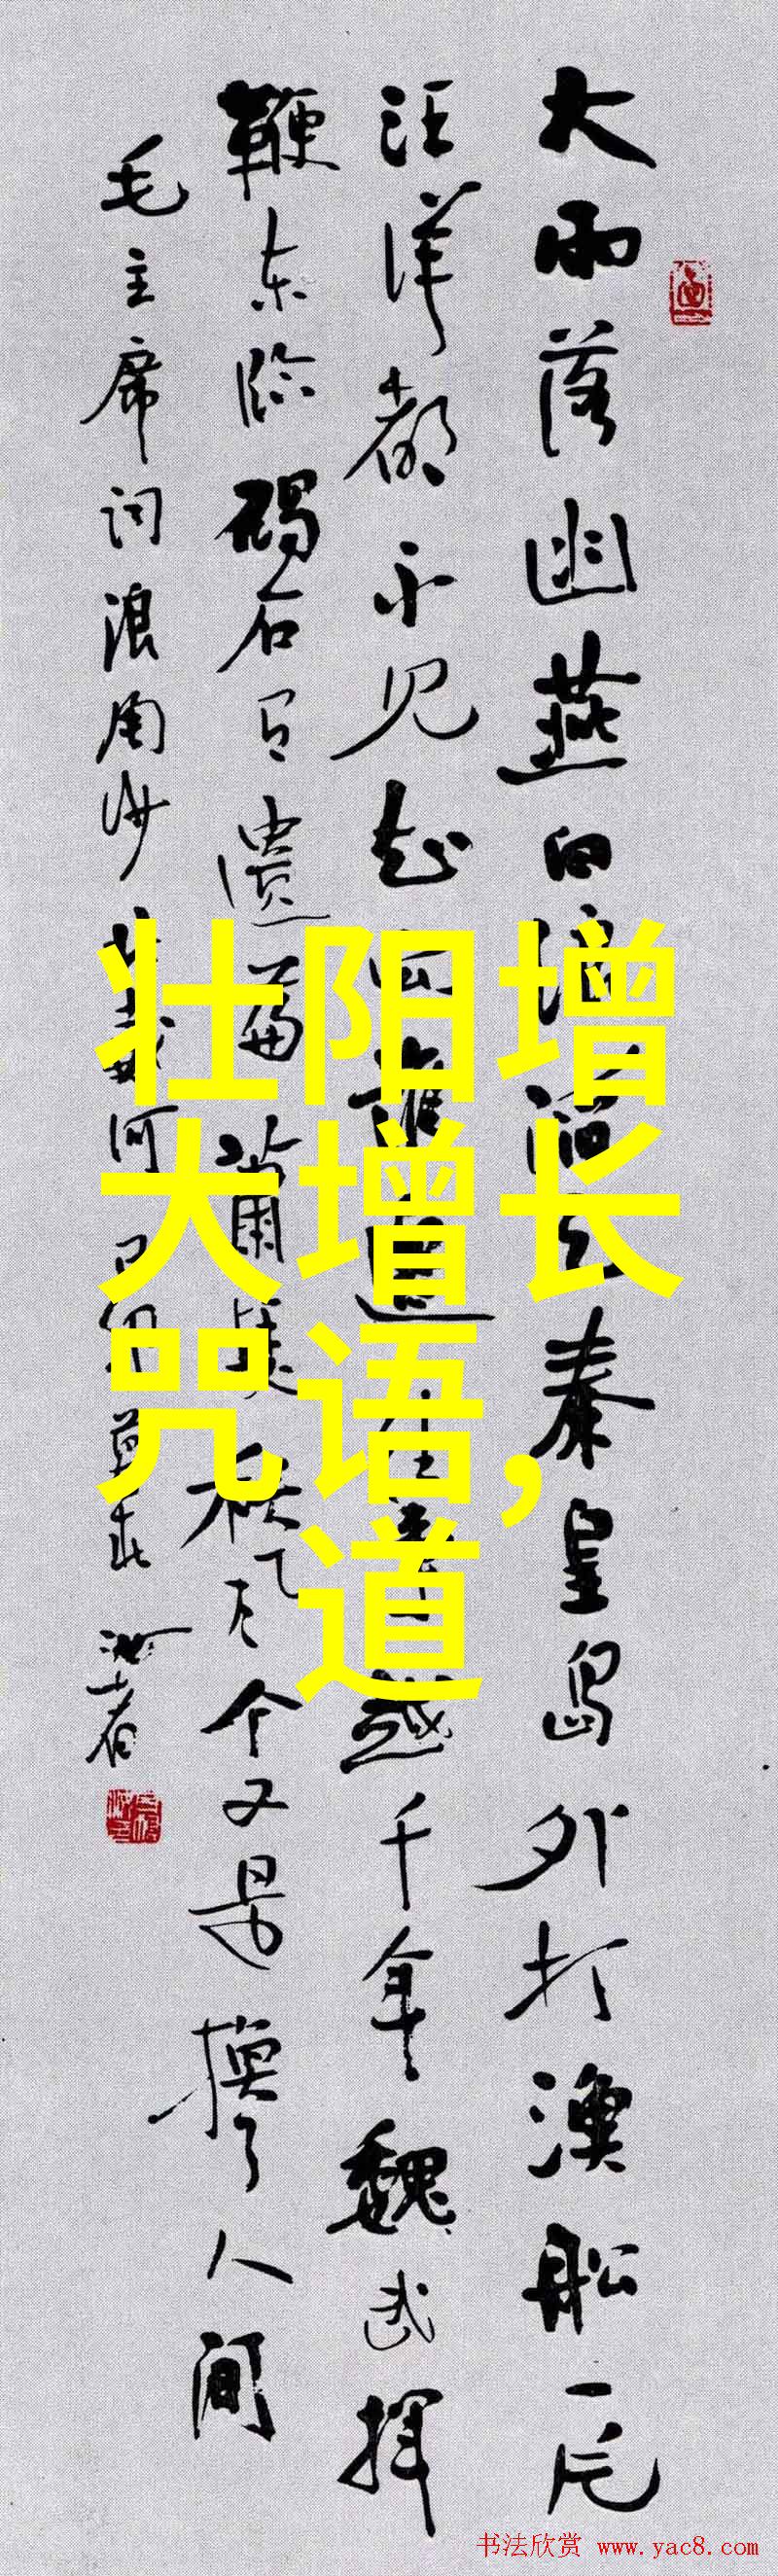 大雨落幽燕白浪滔天秦皇岛外打漁船一片
汪洋都不见知向誰边往事越千年魏武挥
鞭东临碣石有遗篇萧瑟秋风今又是换了人间
毛主席词浪淘沙
壮阳增
大增长
咒语,
道
书法欣赏 www.yac8.com